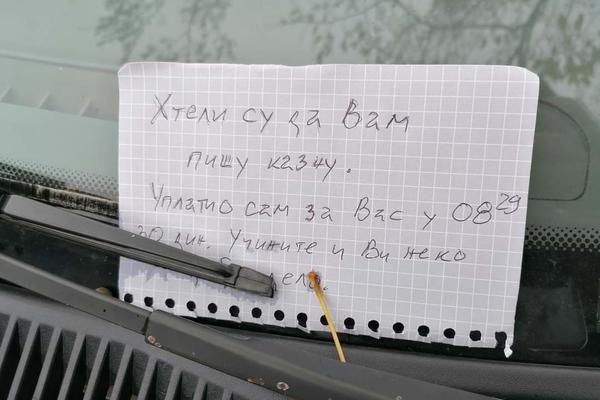 Хтели су да Вам
пишу казну.
Уплатио сам за Вас у 08 29
30 дин. Учините и Ви неко
дело.